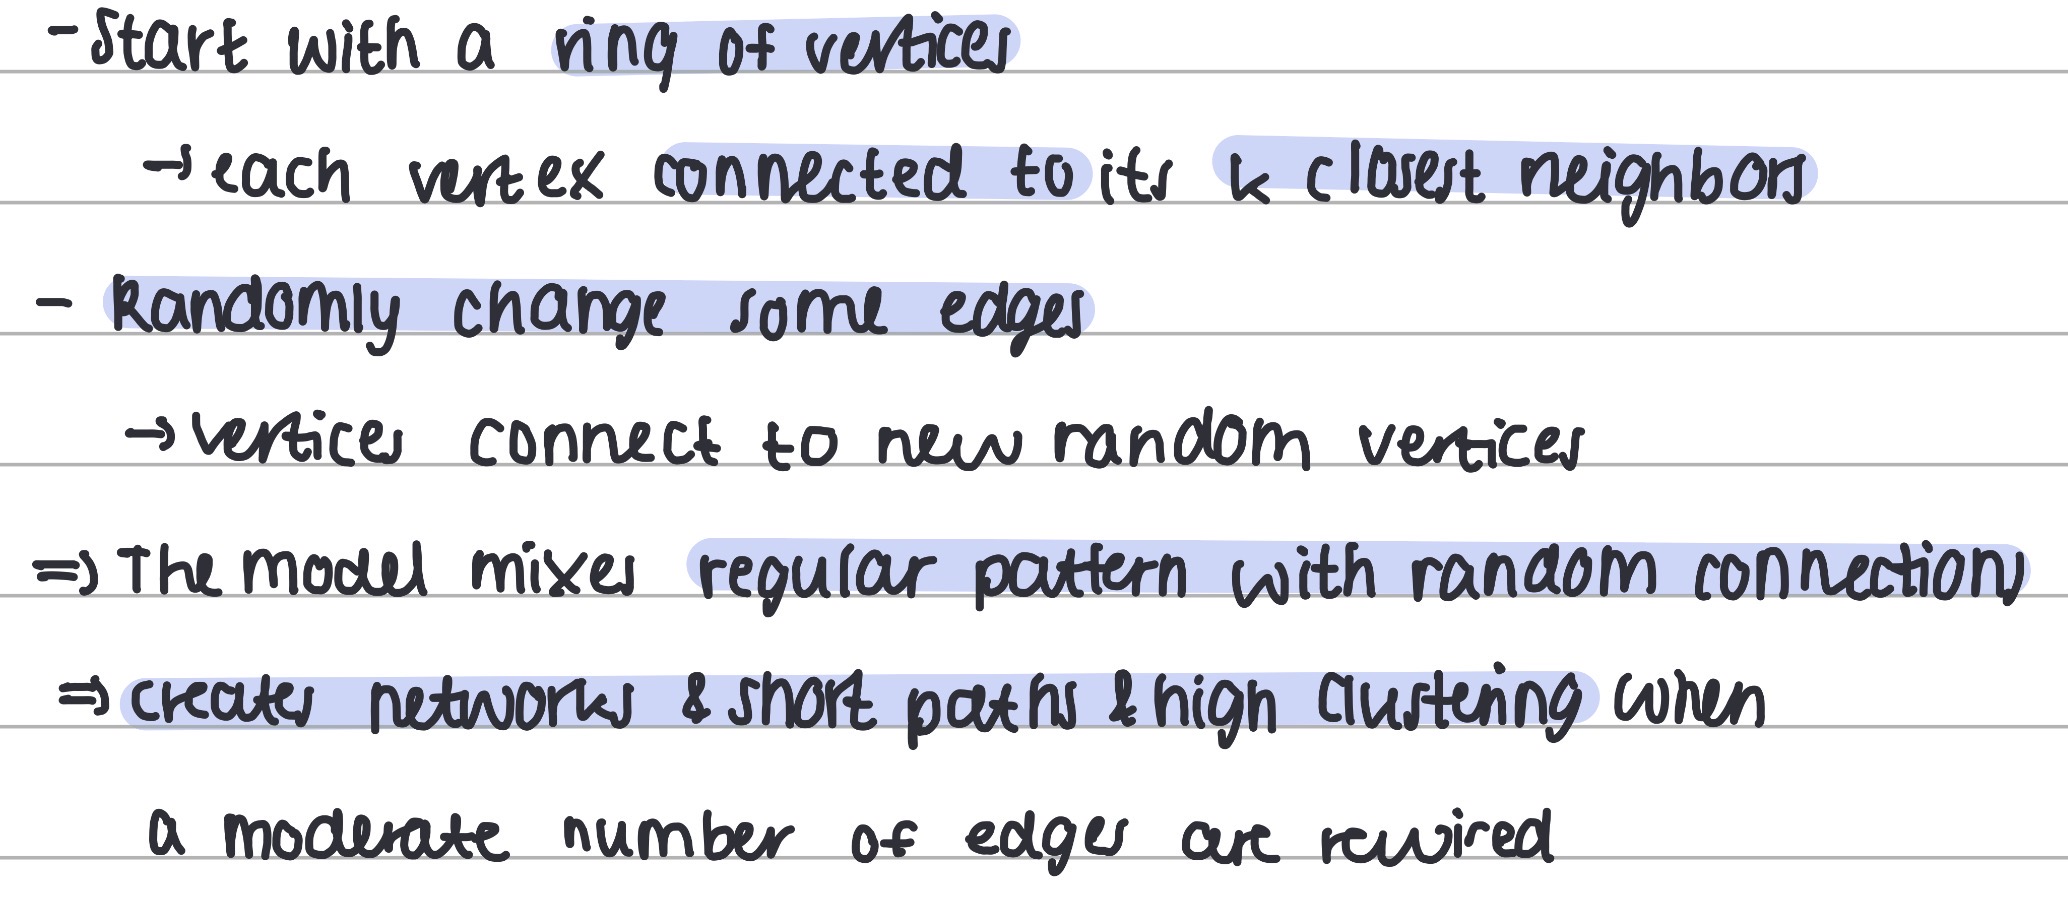 - Start with a ring of vertices
→ each vertex connected to its k closest neighbors
- Randomly change some edges
→ vertices connect to new random vertices
⇒ The model mixes regular pattern with random connections
⇒ creates networks & short paths & high clustering when
a moderate number of edges are rewired